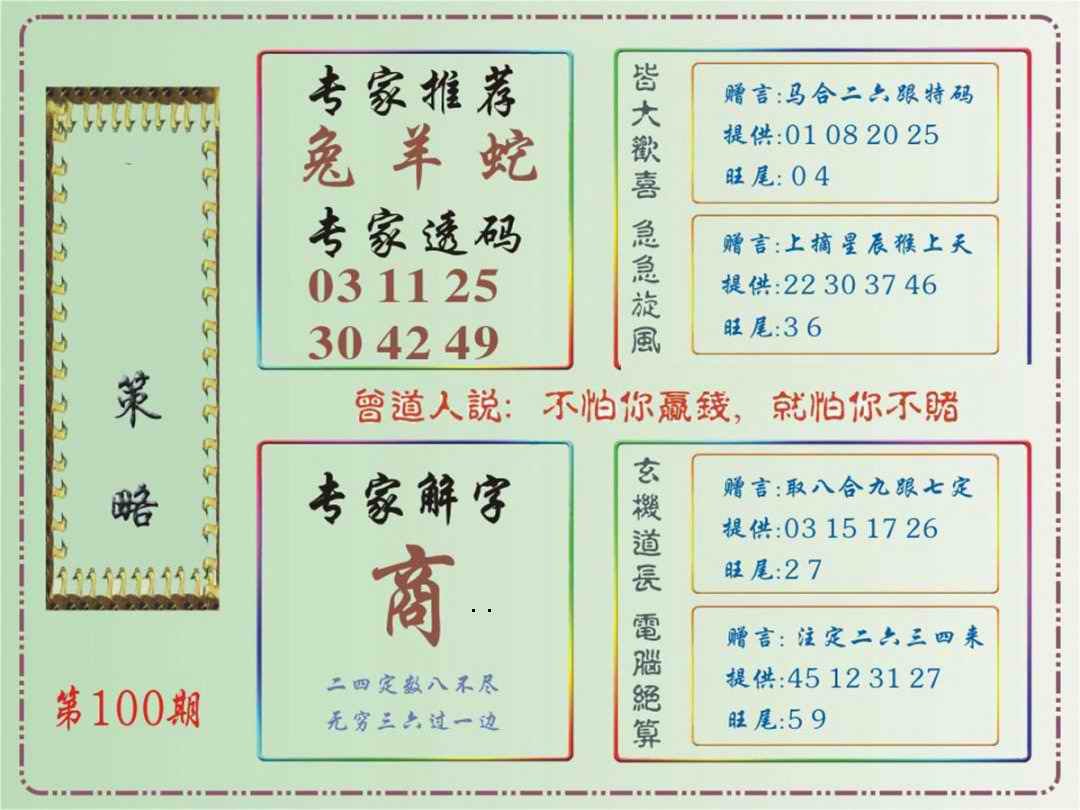 策
略
第100期
专家推荐
兔 羊 蛇
专家透码
03 11 25
30 42 49
皆大歡喜
赠言:马合二六跟特码
提供:01 08 20 25
旺尾: 0 4
急急旋風
赠言:上摘星辰猴上天
提供:22 30 37 46
旺尾:3 6
曾道人説: 不怕你贏錢, 就怕你不賭
专家解字
商
二四定数八不尽
无穷三六过一边
玄機道長
赠言:取八合九跟七定
提供:03 15 17 26
旺尾:2 7
電腦絕算
赠言: 注定二六三四来
提供:45 12 31 27
旺尾:5 9